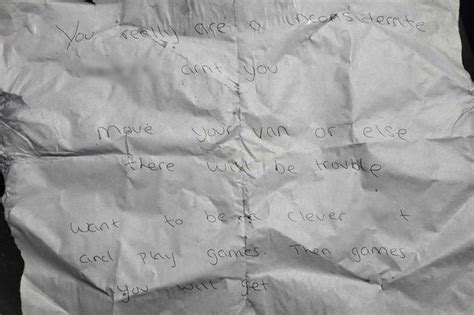 You really are a inconsiderate
arnt you
move your van or else
there will be trouble
want to be a clever
and play games. Then games
you will get